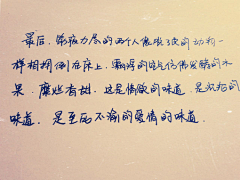 最后，筋疲力尽的两个人像被驯服的动物一
样相拥倒在床上，潮湿的空气仿佛发酵的水
果，糜烂有甜，这是情欲的味道，是沉沦的
味道，是至死不渝的爱情的味道．